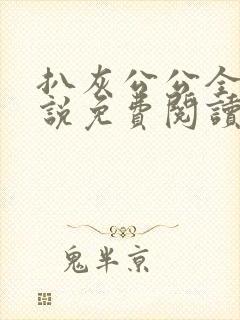 扒灰公公全
說免費閱讀
鬼半京